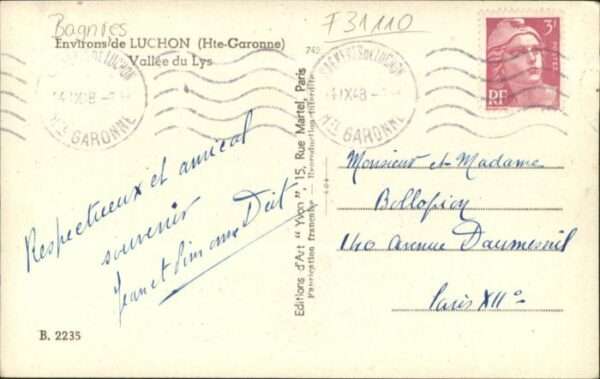 Bagnres
F31110
Environs de LUCHON (Hte-Garonne)
Vallée du Lys
3F
POSTES
RF
DE LUCHON
IX48
HTE GARONNE
BAGNERES DE LUCHON
IX48
HTE GARONNE
Respectueux et amical
souvenir
Jean et Simonne
Editions d'Art "Yvon", 15, Rue Martel, Paris
Fabrication française — Reproduction interdite
Monsieur et Madame
140 avenue Daumesnil
Paris XII°
B. 2235